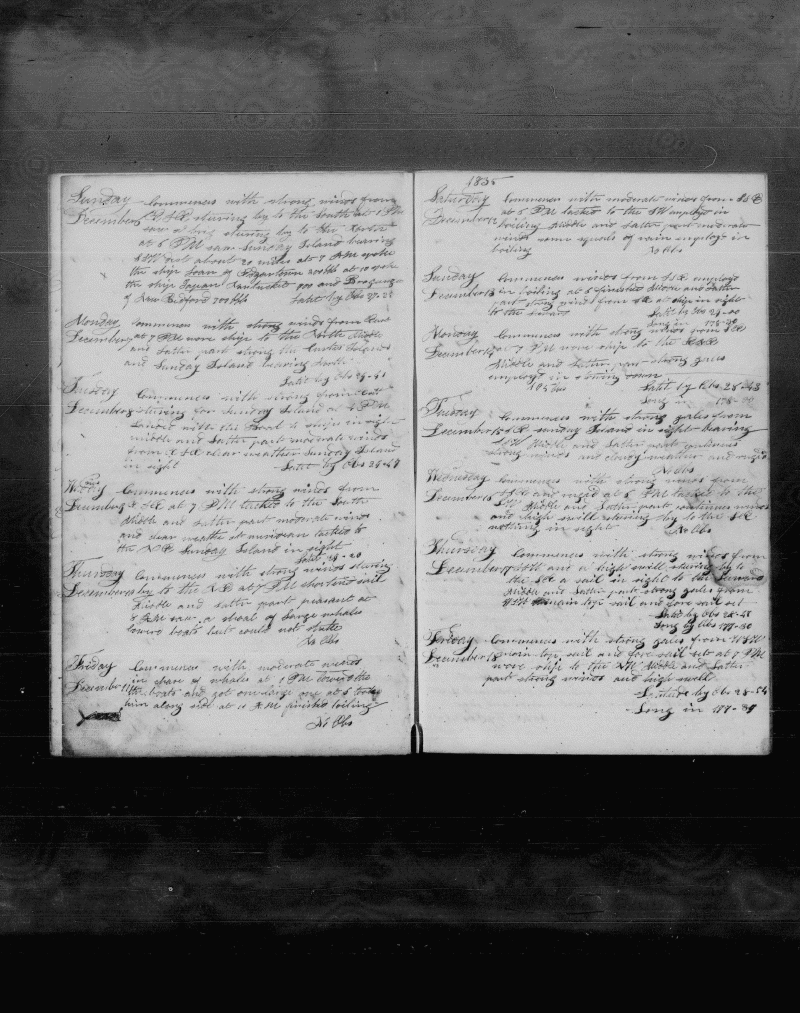 Sunday Commences with strong winds from
December 6th SE steering by to the South at 1 PM
saw a brig steering by to the
at 5 PM saw Sunday Island bearing
SW about 20 miles at 7 AM spoke
the ship of Edgartown 200 bbls at 10 spoke
the ship Japan Nantucket 900 and Braganza
of New Bedford 700 bbls Latt by Obs 29-28
Monday Commences with strong winds from
December 7 at 7 PM wore ship to the North Middle
and Latter part strong the Curtis Islands
and Sunday Island bearing
Latt by Obs 29-41
Tuesday Commences with strong from East
December 8 steering for Sunday Island at 2 PM
with the Boat to ships in sight
middle and Latter part moderate winds
from ESE clear weather Sunday Island
in sight Latt by Obs 29-49
Wednesday Commences with strong winds from
December 9 at 7 PM tacked to the South
Middle and Latter part moderate winds
and clear weather at meridian tacked to
the NE Sunday Island in sight
Latt 29-20
Thursday Commences with strong winds steering
December 10 by to the NE at 7 PM shortned sail
Middle and Latter part pleasant at
8 AM saw a shoal of large whales
lowerd boats but could not strike
No Obs
Friday Commences with moderate winds
December 11th in chase of whales at 1 PM lowerd the
boats and got one large one at 5 took
him along side at 10 AM finished
boiling
No Obs
1835
Saturday Commences with moderate winds from SSE
December 12 at 5 PM tacked to the SW employd in
boiling Middle and Latter part moderate
winds some squals of rain employd in
boiling No Obs
Sunday Commences winds from SE employd
December 13 in boiling at 8 finished Middle and Latter
part strong winds from SE at ship in sight
to the Latt by Obs 29-00
Long in 178-30
Monday Commences with strong winds from SE
December 14 at 7 PM wore ship to the
Middle and Latter part strong gales
employd in stowing down
Latt by Obs 28-43
Long in 178-00
Tuesday Commences with strong gales from
December 15 SE Sunday Island in sight bearing
SW Middle and Latter part continues
strong winds and cloudy weather and ruged
No Obs
Wednesday Commences with strong winds from
December 16 SSE and ruged at 5 PM tacked to the
SW Middle and Latter part continues winds
and high swell steering by to the SE
nothing in sight No Obs
Thursday Commences with strong winds from
December 17 SSW and a high swell steering by to
the SE a sail in sight to the Leeward
Middle and Latter part strong gales from
WSW main top sail and fore sail set
Latt by Obs 28-58
Long by Obs 177-30
Friday Commences with strong gales from WSW
December 18 main top sail and fore sail set at 7 PM
wore ship to the NW Middle and Latter
part strong winds and high swell
Latitude by Obs 28-54
Long in 177-37